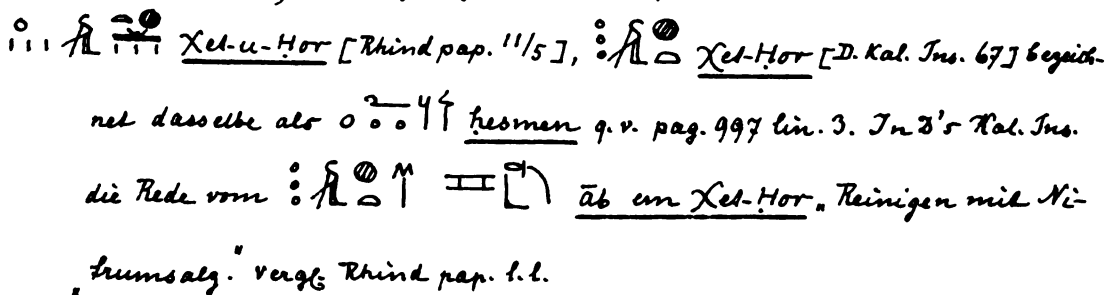 Xet-u-Ḥor [Rhind pap. 11/5], Xet-Ḥor [D. Kal. Ins. 67] bezeich-
net dasselbe als ḥesmen q. v. pag. 997 lin. 3. In D's Kal. Ins.
die Rede vom āb em Xet-Ḥor „Reinigen mit Ni-
trumsalz." vergl. Rhind pap. l. l.